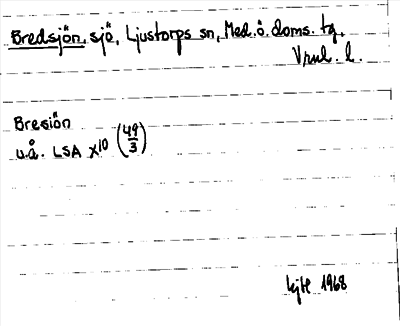 Bredsjön, sjö, Ljustorps sn, Med. ö. doms. tg.
Vnul. l.
Bresiön
u.å. LSA X10 (49/3)
1968